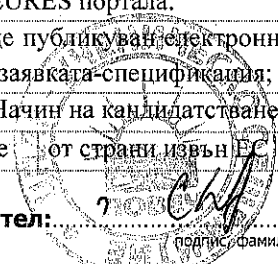 CURES портала.
публикуван електронн
заявката-спецификация;
Начин на кандидатстване
от страни извън ЕС
тел:
подпис, фами